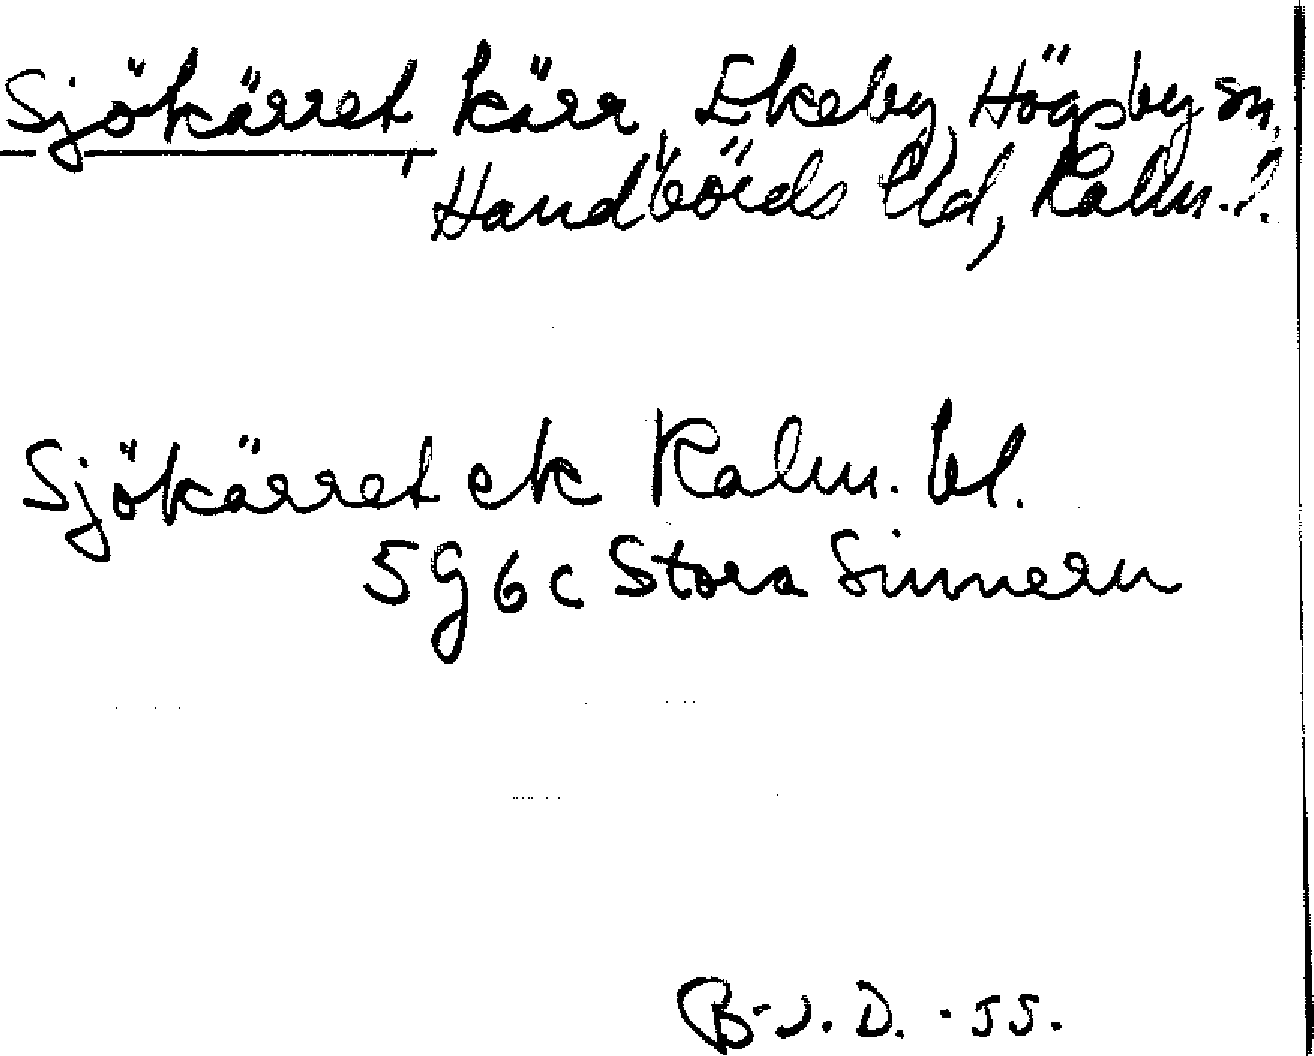 Sjökärret, kärr, Ekeby, Högsby sn,
Handbörds hd, Kalm. l.
Sjökärret ek Kalm. bl.
5G6c Stora Sinnern
B-J.D. -55.